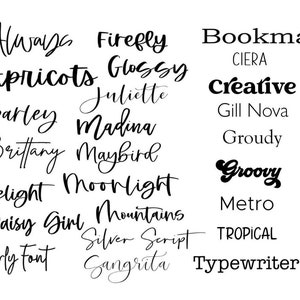 Always
Apricots
Barley
Brittany
Delight
Daisy Girl
Curly Font
Firefly
Glossy
Juliette
Madina
Maybird
Moonlight
Mountains
Silver Script
Sangrita
Bookma
CIERA
Creative
Gill Nova
Groudy
Groovy
Metro
TROPICAL
Typewriter